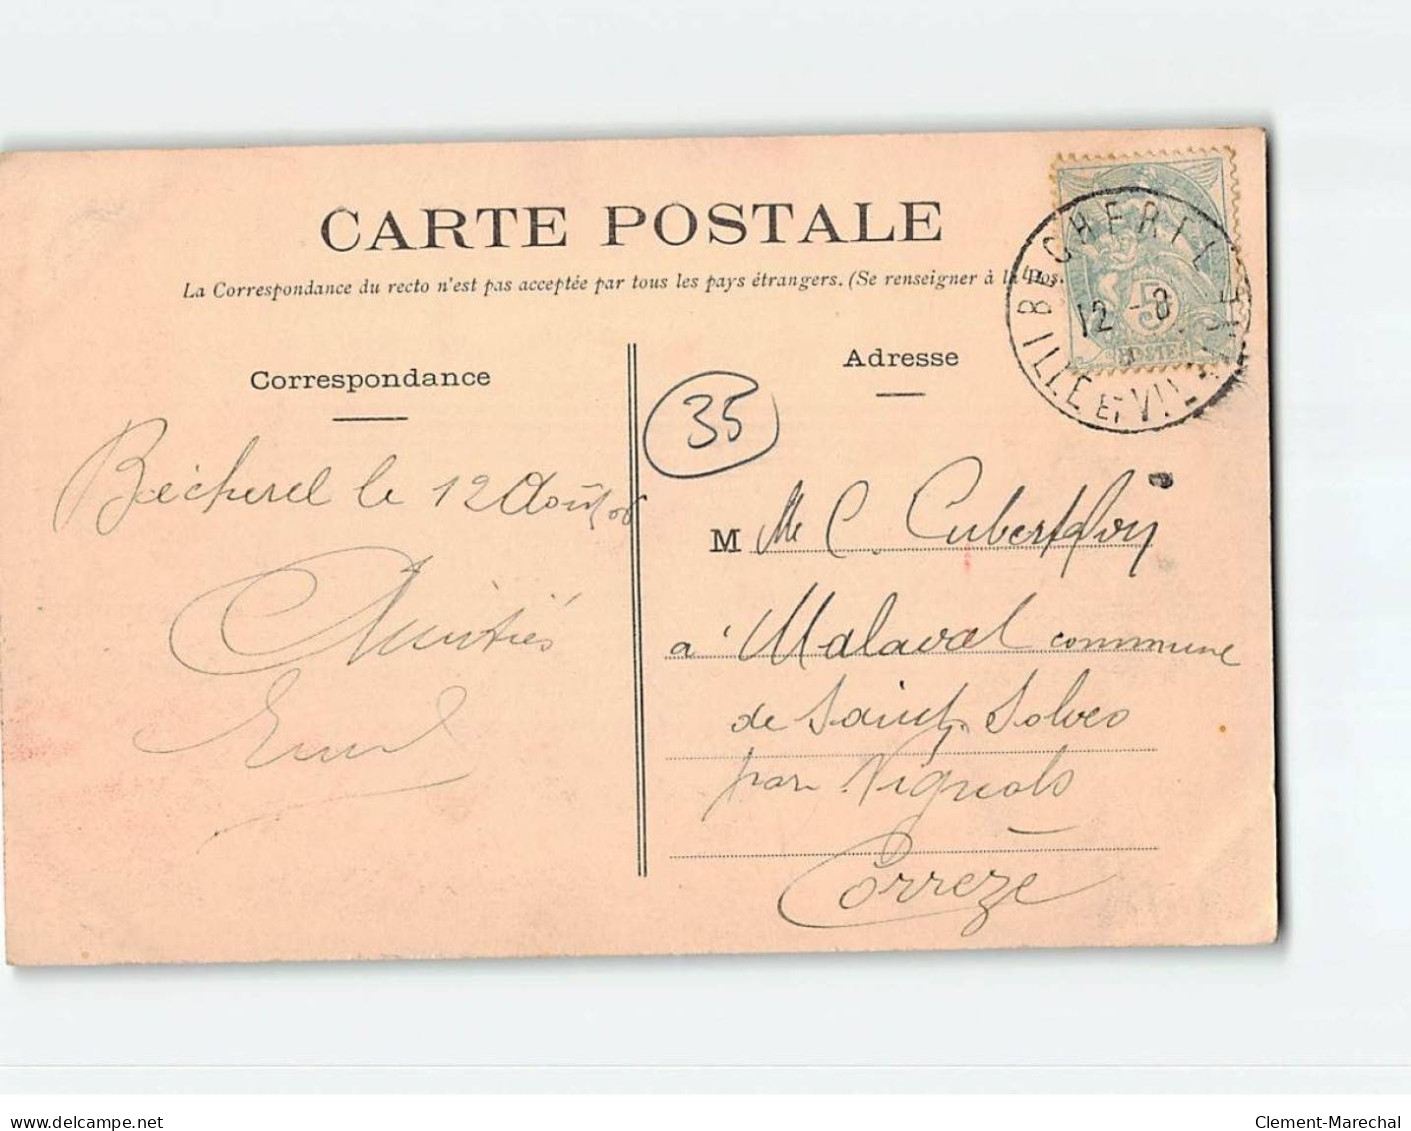 CARTE POSTALE
La Correspondance du recto n'est pas acceptée par tous les pays étrangers. (Se renseigner à la Pos
Correspondance
Adresse
BÉCHEREL
12 - 8
ILLE ET VILAINE
5
POSTES
35
Bécherel le 12 Août 06
Amitiés
M Me C. Cubertafon
à Malaval commune
de Saint-Solves
par Vignols
Corrèze
delcampe.net
Clement-Marechal